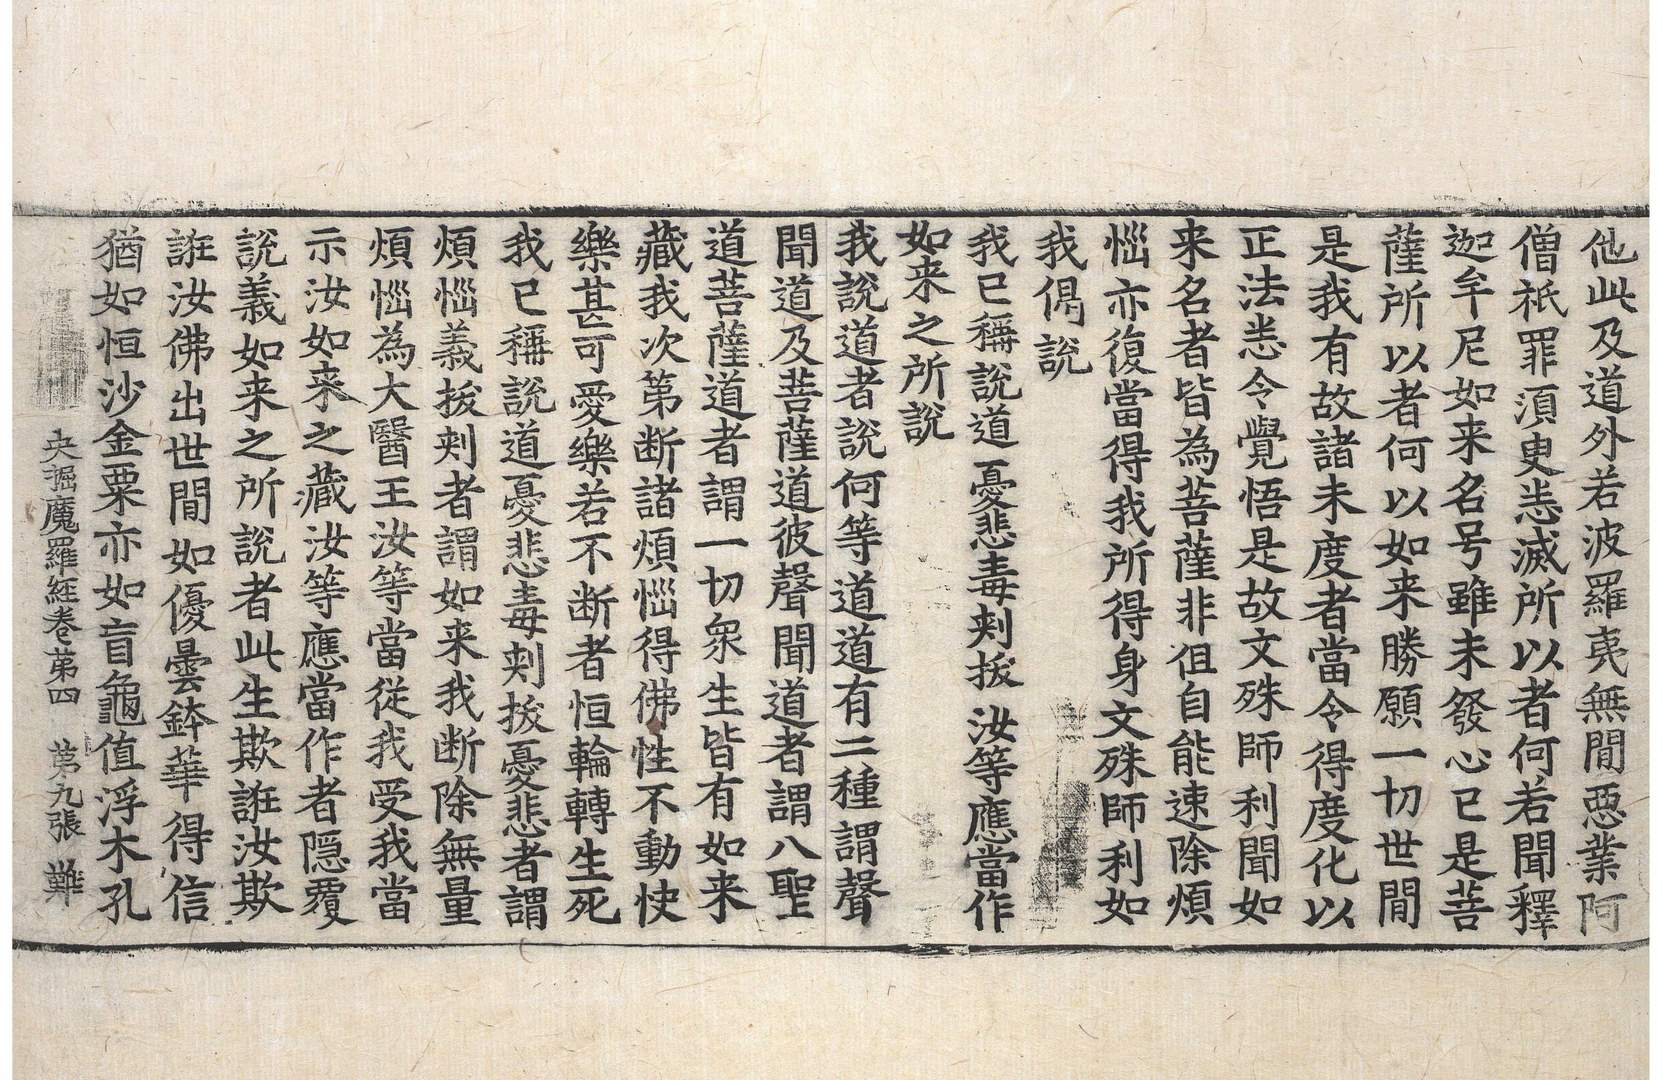 他此及道外若波羅夷無閒惡業阿
僧祇罪須臾恙滅所以者何若聞釋
迦牟尼如来名号雖未發心已是菩
薩所以者何以如来勝願一切世閒
是我有故諸未度者當令得度化以
正法恙令覺悟是故文殊師利聞如
来名者皆為菩薩非但自能速除煩
惱亦復當得我所得身文殊師利如
我偈說
我已稱說道 憂悲毒刺拔 汝等應當作
如来之所說
我說道者說何等道道有二種謂聲
聞道及菩薩道彼聲聞道者謂八聖
道菩薩道者謂一切眾生皆有如来
藏我次第断諸煩惱得佛性不動快
樂甚可愛樂若不断者恒輪轉生死
我已稱說道憂悲毒刺拔憂悲者謂
煩惱義拔刺者謂如来我断除無量
煩惱為大醫王汝等當從我受我當
示汝如来之藏汝等應當作者隠覆
說義如来之所說者此生欺誑汝欺
誑汝佛出世閒如優曇鉢華得信
猶如恒沙金粟亦如盲龜值浮木孔
央掘魔羅経卷第四 第九張 難